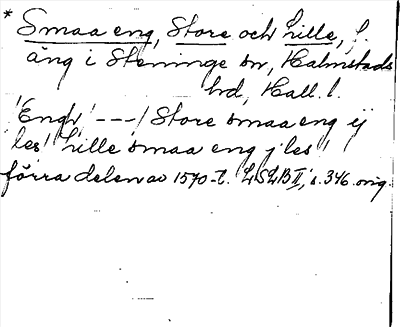 * Smaa eng, Store och Lille, f.
äng i Steninge sn, Halmstads
hd, Hall. l.
'Engh' ---/ Store smaa eng ij
les' 'Lille smaa eng j les'
förra delen av 1570-t. LSLB II, s. 346 orig.